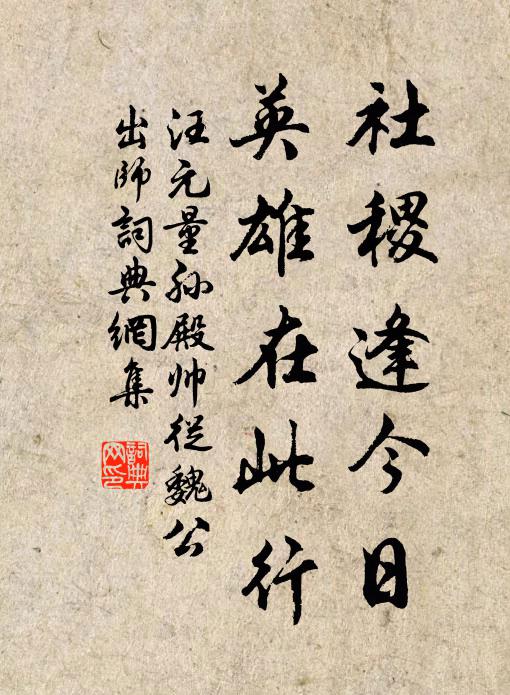 社稷逢今日
英雄在此行
汪元量孙殿帅從魏公
出師詞典網集
詞典
网印